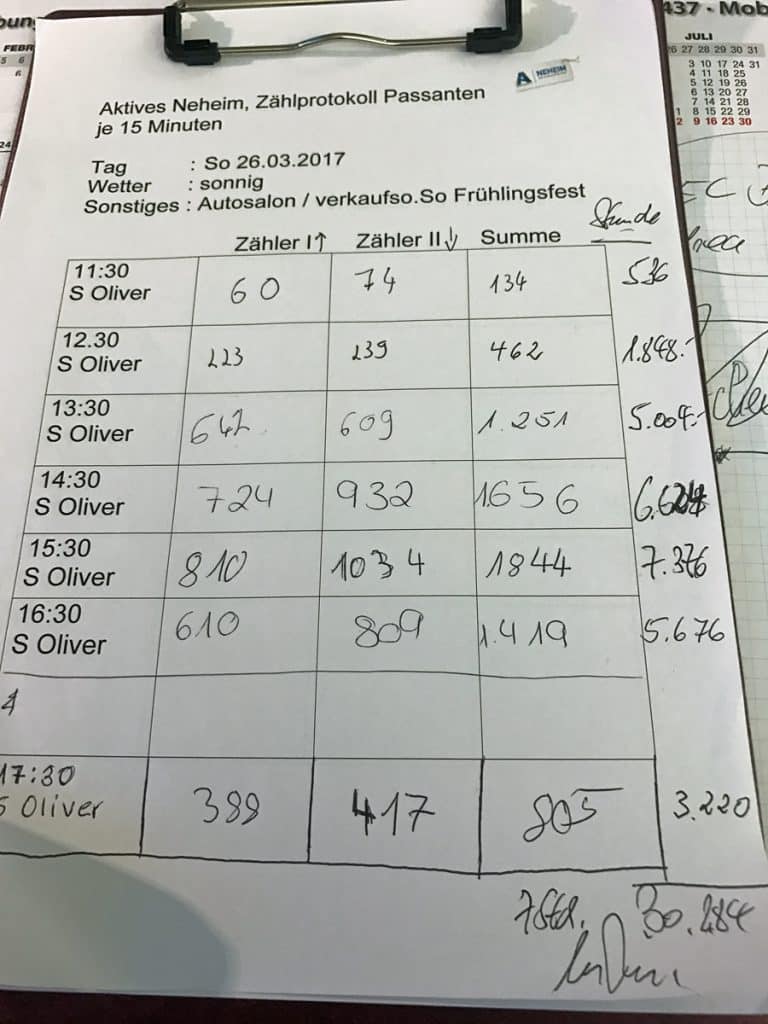 437 - Mob
FEBR
JULI
26 27 28 29 30 31
3 10 17 24 31
4 11 18 25
5 12 19 26
6 13 20 27
7 14 21 28
1 8 15 22 29
2 9 16 23 30
A NEHEIM
Aktives Neheim, Zählprotokoll Passanten
je 15 Minuten
Tag : So 26.03.2017
Wetter : sonnig
Sonstiges : Autosalon / verkaufso.So Frühlingsfest
Stunde
Zähler I↑ Zähler II↓ Summe
11:30
S Oliver 60 74 134 536
12.30
S Oliver 223 239 462 1.848.-
13:30
S Oliver 642 609 1.251 5.004.-
14:30
S Oliver 724 932 1.656 6.624
15:30
S Oliver 810 1034 1844 7.376
16:30
S Oliver 610 809 1.419 5.676
17:30
S Oliver 388 417 805 3.220
7 Std. 30.284